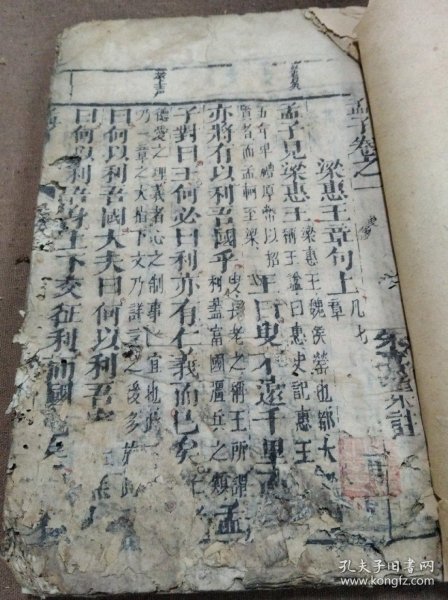 孟子卷之一
朱熹集註
梁惠王章句上 凡七章
孟子見梁惠王 梁惠王魏侯罃也都大梁
王諡曰惠史記惠王
五年卑禮厚幣以招
賢者而孟軻至梁 王曰叟不遠千里而
亦將有以利吾國乎 叟長老之稱王所謂
利蓋富國彊兵之類 孟
子對曰王何必曰利亦有仁義而已矣 仁
德愛之理義者心之制事宜也此
乃一章之大指下文乃詳言之後多放此
曰何以利吾國大夫曰何以利吾
曰何以利吾身上下交征利而國
孔夫子旧书网
www.kongfz.com